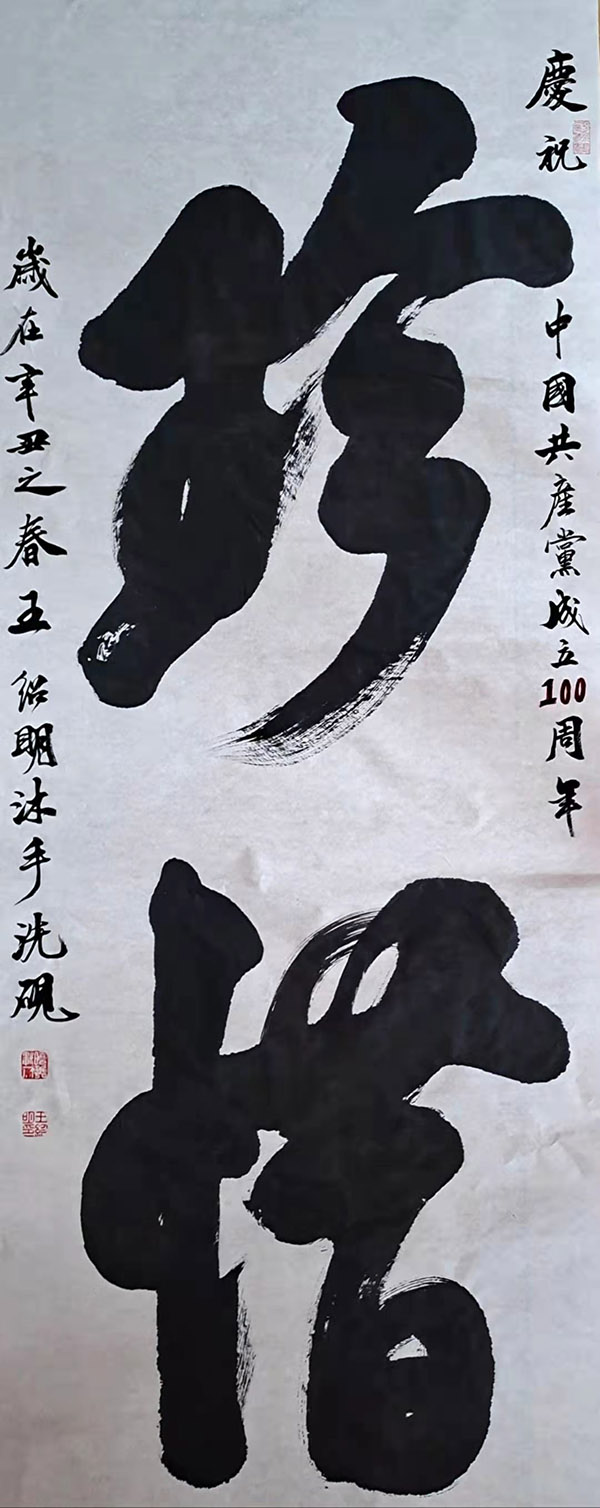 慶祝
中國共產黨成立100周年
珍惜
歲在辛丑之春王紹明沐手洗硯